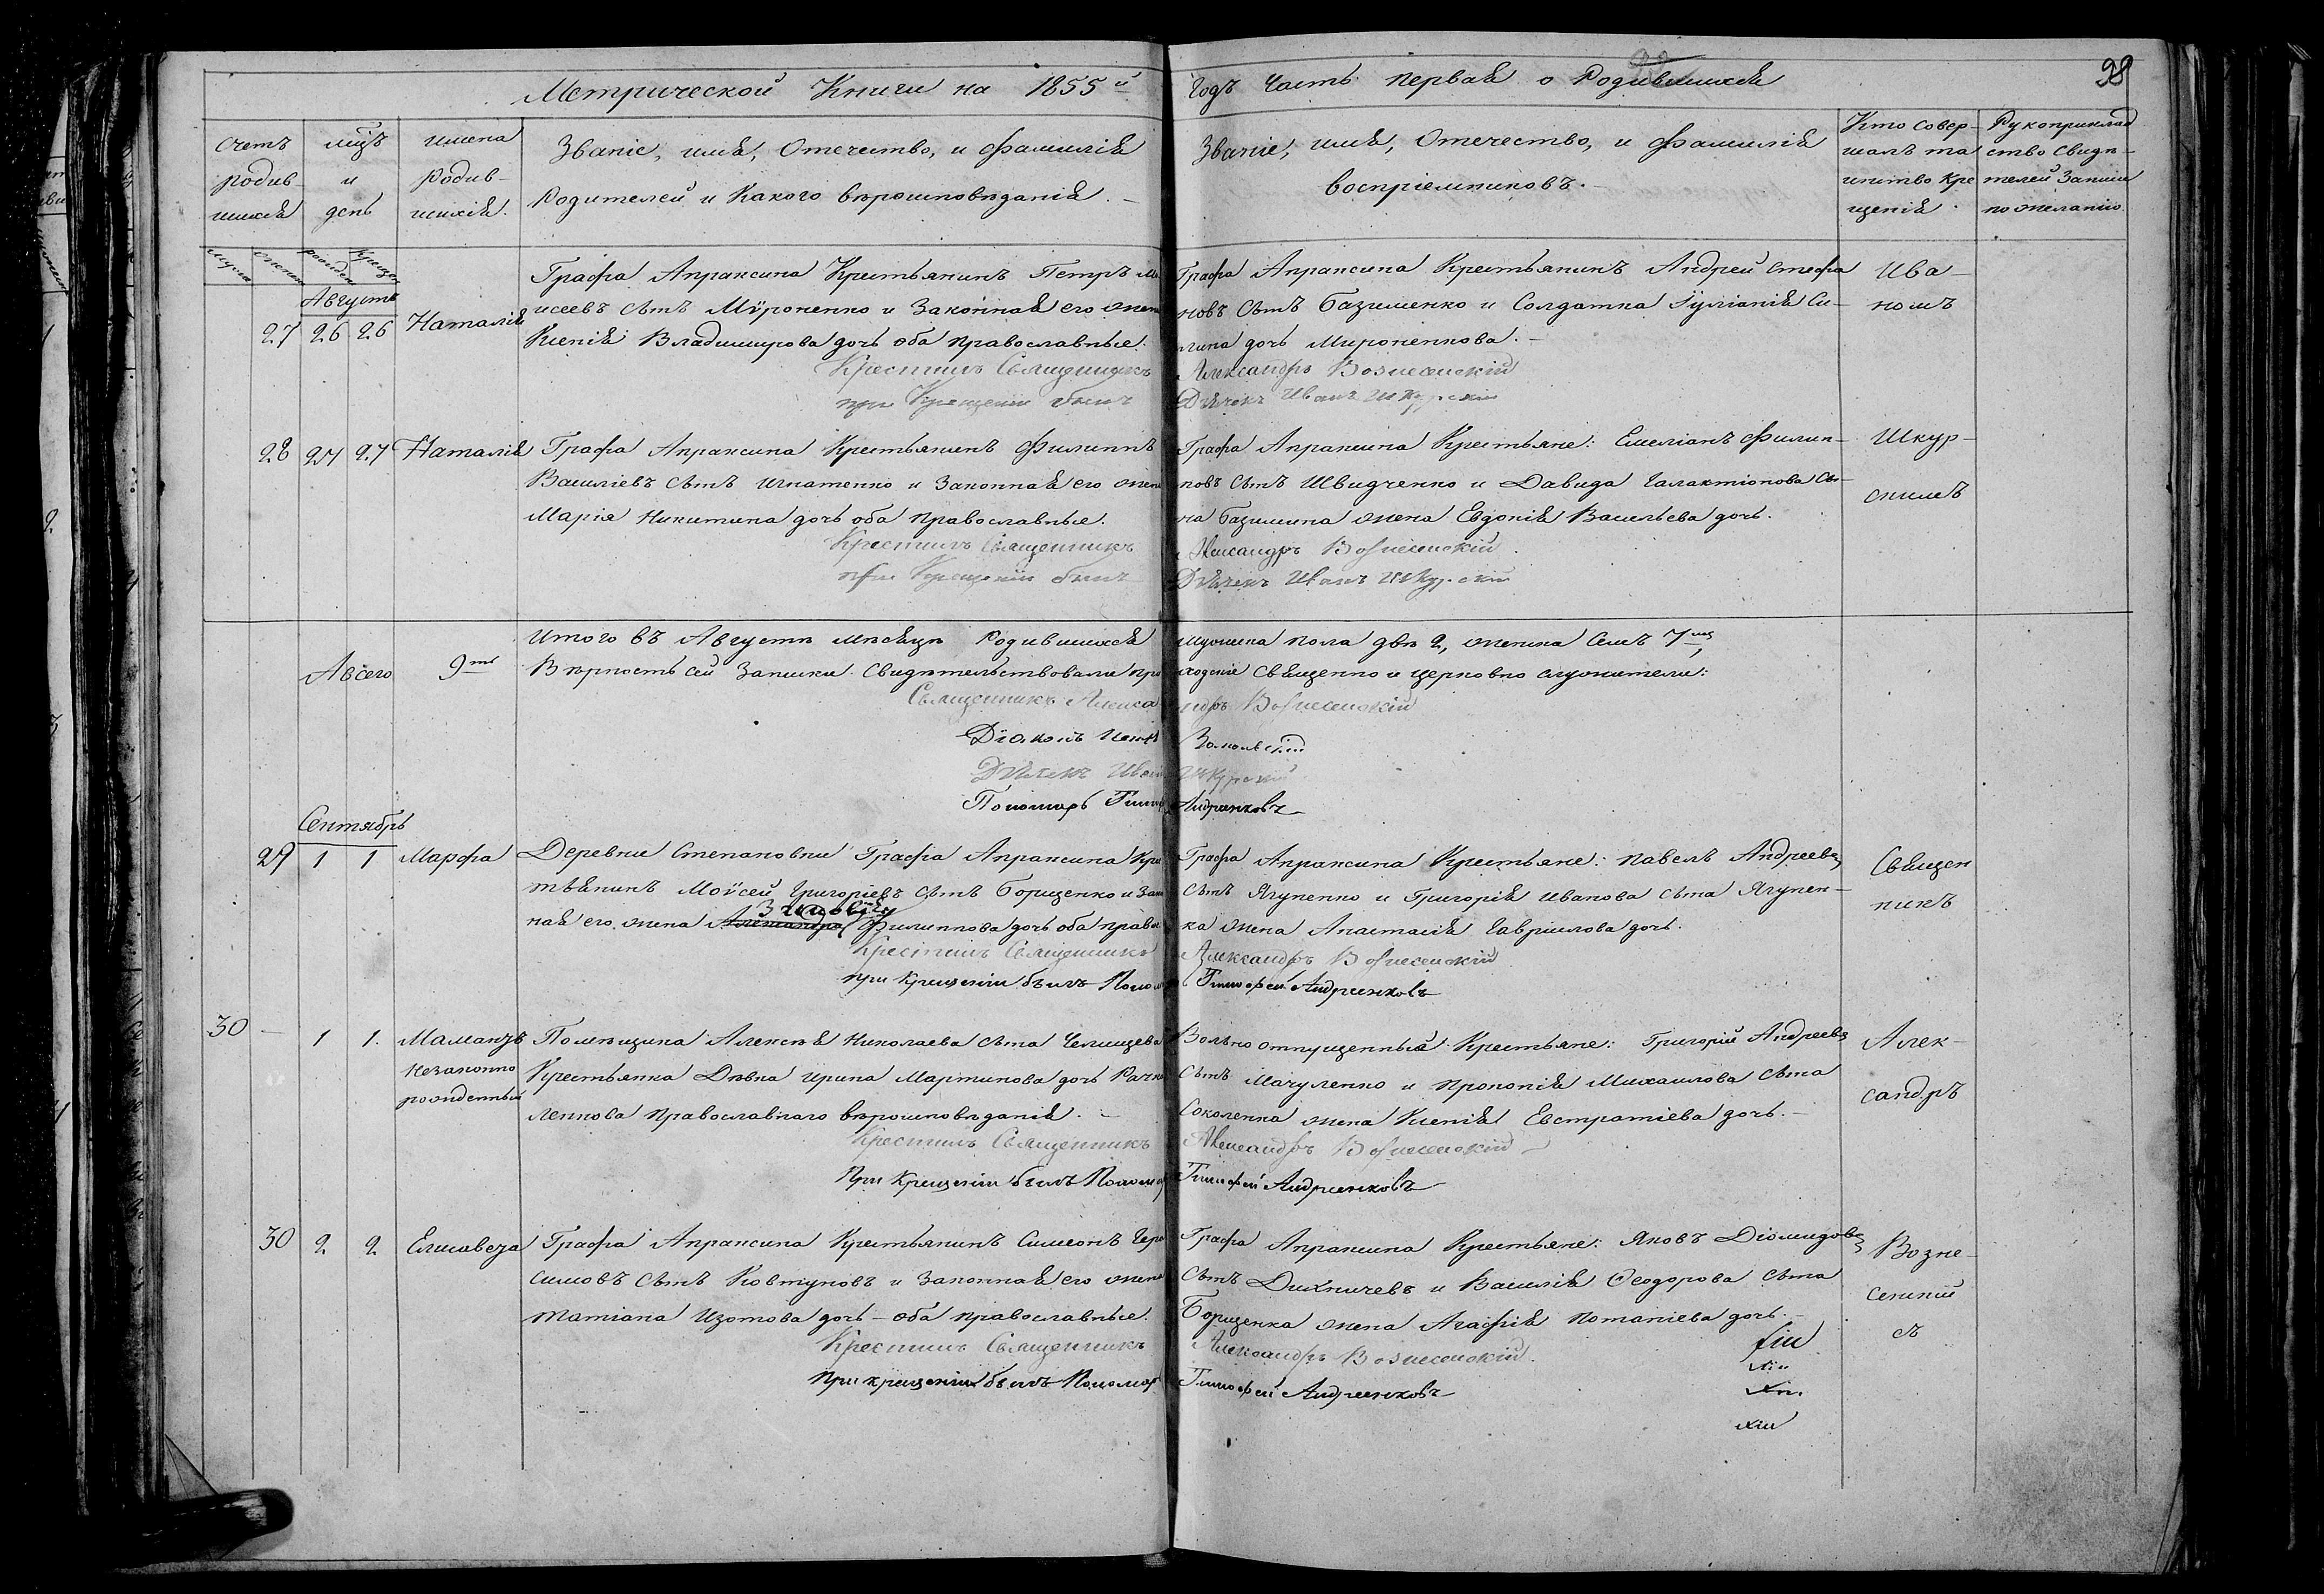 Метрической Книги на 1855й Годъ Часть первая о Родившихся
98
Счетъ родив-шихся
мцъ и день
имена родив-шихся.
Званіе, имя, Отечество, и фамилія
Родителей и Какого вѣроисповѣданія. –
Званіе, имя, Отечество, и фамилія
воспріемниковъ. –
Кто Совер-шалъ таинство Крещенія.
Рукоприкладство Свидѣ-телей Записи по желанію.
Августъ
27 26 26 Наталія
Графа Апраксина Крестьянинъ Петръ Мо
исеевъ сынъ Мѵроненко и Законная его жена
Ксенія Владимирова дочь оба православные.
Крестилъ Священникъ
при Крещеніи былъ
Графа Апраксина Крестьянинъ Андрей Стефа
новъ Сынъ Базименко и Солдатка Іуліанія Си-
лина дочь Мироненкова. –
Александръ Вознесенскій
Дьячекъ Иванъ Шкурскій
Ива-
номъ
28 27 27 Наталія
Графа Апраксина Крестьянинъ Филиппъ
Василіевъ сынъ Игнатенко и Законная его жена
Марія Никитина дочь оба православные.
Крестилъ Священникъ
при Крещеніи былъ
Графа Апраксина Крестьяне: Емеліанъ Филип-
повъ сынъ Швидченко и Давида Галактіонова Сы-
на Базимина жена Евдокія Васильева дочь.
Александръ Вознесенскій.
Дьячекъ Иванъ Шкурскій
Шкур-
скимъ
Итого въ Августѣ мѣсяцѣ Родившихся
Мужеска пола двѣ 2, женска Семъ 7мь
Авсего 9ть
Вѣрность сей Записки Свидѣтельствовали при
ходскіе Священно и церковно служители:
Священникъ Алекса
ндръ Вознесенскій
Діаконъ
Дьячекъ Иван
Шкурскій
Пономарь Тимо
Андріенковъ
Сентябрь
29 1 1 Марфа
Деревни Степановки Графа Апраксина Кре
тьянинъ Моѵсей Григоріевъ сынъ Борщенко и Зако
Зиновія
ная его жена Александра Филиппова дочь оба право
Крестилъ Священникъ
при Крещеніи былъ Поном
Графа Апраксина Крестьяне: Павелъ Андреевъ
Сынъ Ягупенко и Григорія Иванова сына Ягупен-
ка жена Анастасія Гавріилова дочь.
Александръ Вознесенскій
Тимофей Андріенковъ
Священ
никъ
30 – 1 1. Мамантъ
незаконно
рожденный
Помѣщика Алексѣя Николаева сына Челищева
Крестьянка Дѣвка Ирина Мартинова дочь
ленкова Православнаго вѣроисповѣданія. –
Крестилъ Священникъ
При Крещеніи былъ Пономар
Вольно отпущенный Крестьяне: Григорій Андреевъ
Сынъ Мачуленко и Прокопія Михаилова сына
Соколенка жена Ксенія Евстратіева дочь. –
Александръ Вознесенскій –
Тимофей Андріенковъ
Алек-
сандръ
30 2 2 Елисавета
Графа Апраксина Крестьянинъ Симеонъ Гера
симовъ сынъ Ковтуновъ и Законная его жена
Татіана Изотова дочь – оба православные.
Крестилъ Священникъ
При крещеніи былъ Пономар
Графа Апраксина Крестьяне: Яковъ Діомидовъ
Сынъ Дихничевъ и Василія Ѳеодорова сына
Борщенка жена Агафія Потапіева дочь. –
Александръ Вознесенскій.
Тимофей Андріенковъ
Возне-
сенскій
съ